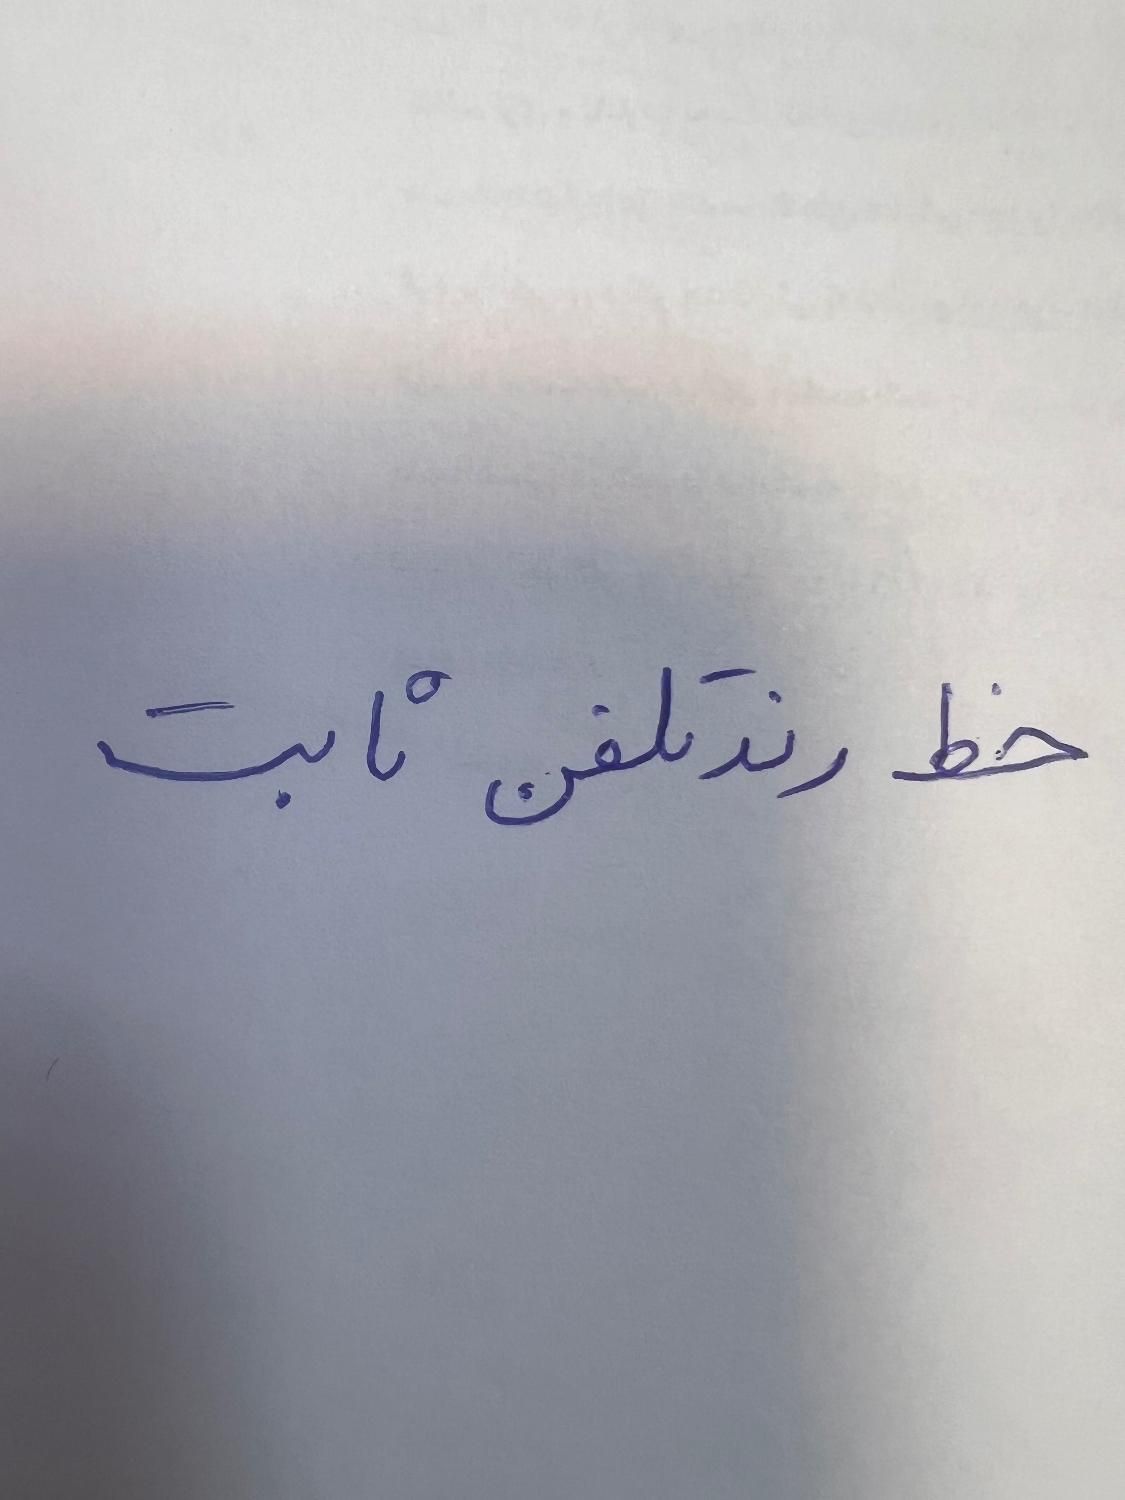 خط رند تلفن ثابت